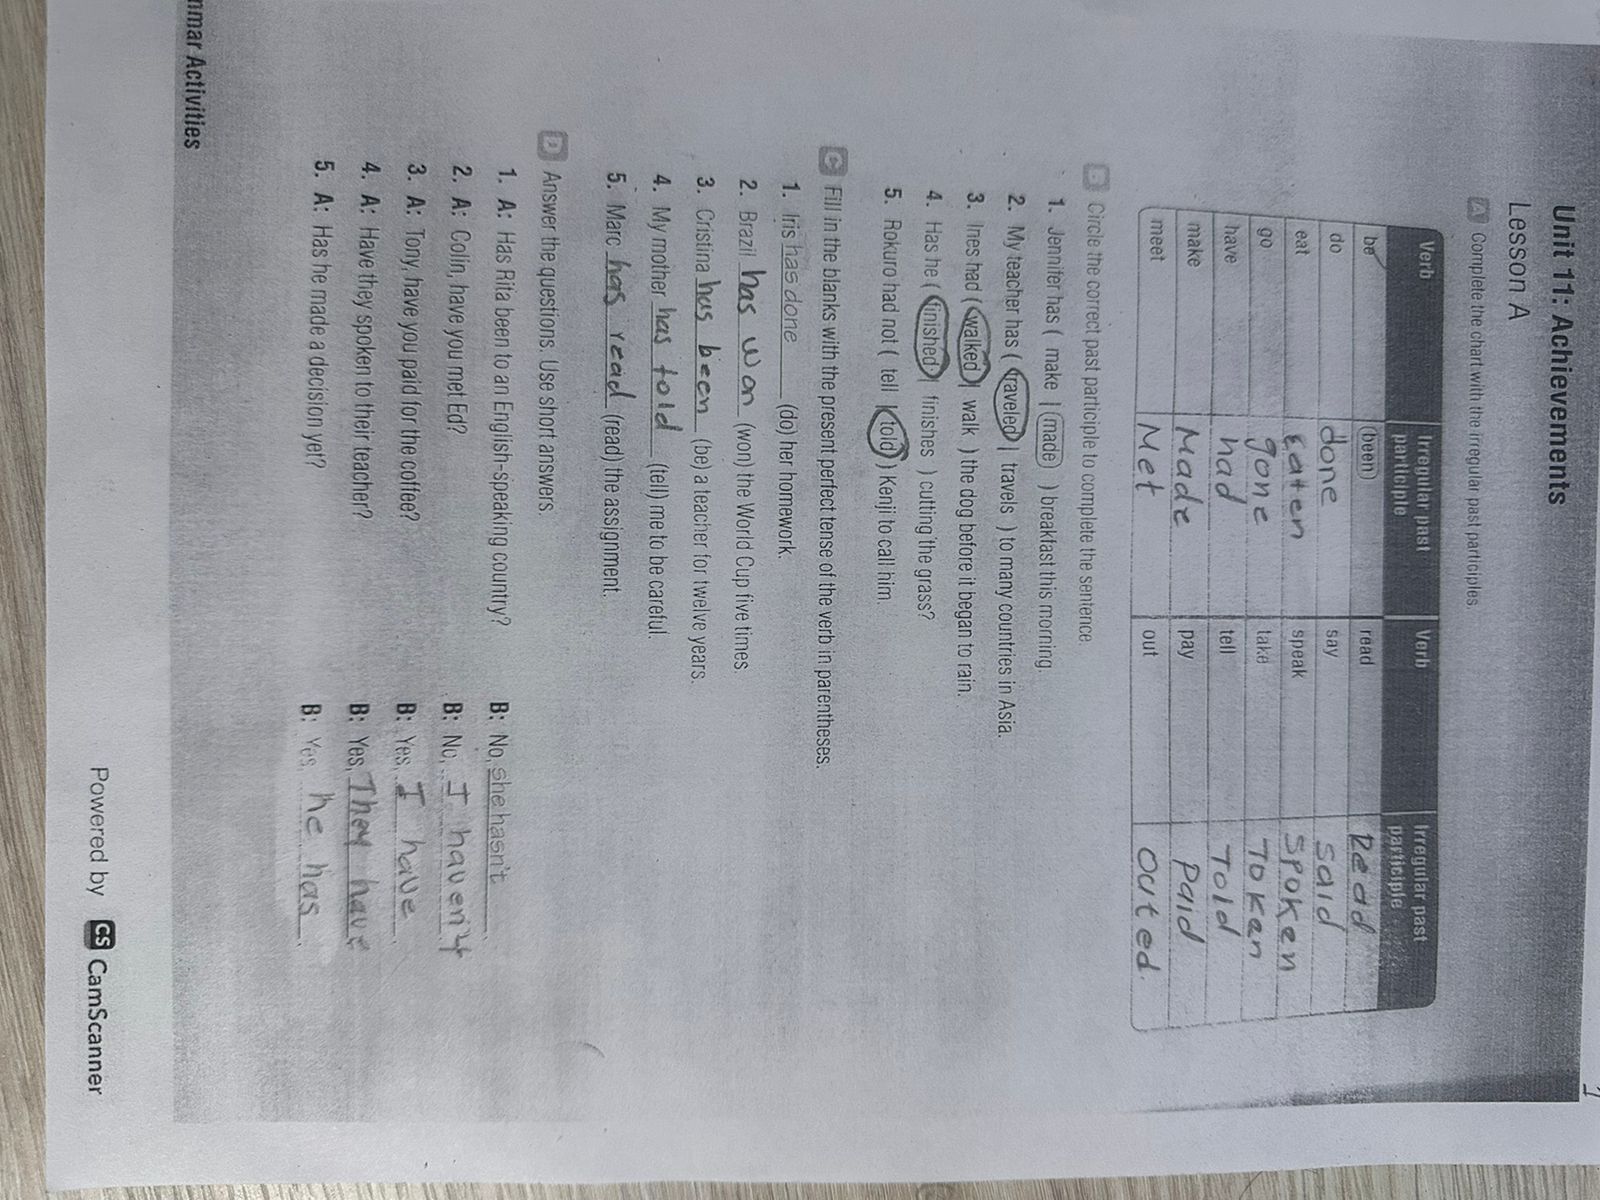 1
Unit 11: Achievements
Lesson A
A Complete the chart with the irregular past participles.
Verb Irregular past participle Verb Irregular past participle
be been read Read
do done say said
eat Eaten speak SPOKen
go gone take TOKen
have had tell Told
make Made pay Paid
meet Met out outed.
B Circle the correct past participle to complete the sentence.
1. Jennifer has ( make | made ) breakfast this morning.
2. My teacher has ( traveled | travels ) to many countries in Asia.
3. Ines had ( walked | walk ) the dog before it began to rain.
4. Has he ( finished | finishes ) cutting the grass?
5. Rokuro had not ( tell | told ) Kenji to call him.
C Fill in the blanks with the present perfect tense of the verb in parentheses.
1. Iris has done (do) her homework.
2. Brazil has won (won) the World Cup five times.
3. Cristina has been (be) a teacher for twelve years.
4. My mother has told (tell) me to be careful.
5. Marc has read (read) the assignment.
D Answer the questions. Use short answers.
1. A: Has Rita been to an English-speaking country? B: No, she hasn't.
2. A: Colin, have you met Ed? B: No, I haven't
3. A: Tony, have you paid for the coffee? B: Yes, I have.
4. A: Have they spoken to their teacher? B: Yes, They have
5. A: Has he made a decision yet? B: Yes, he has.
mmar Activities
Powered by CS CamScanner